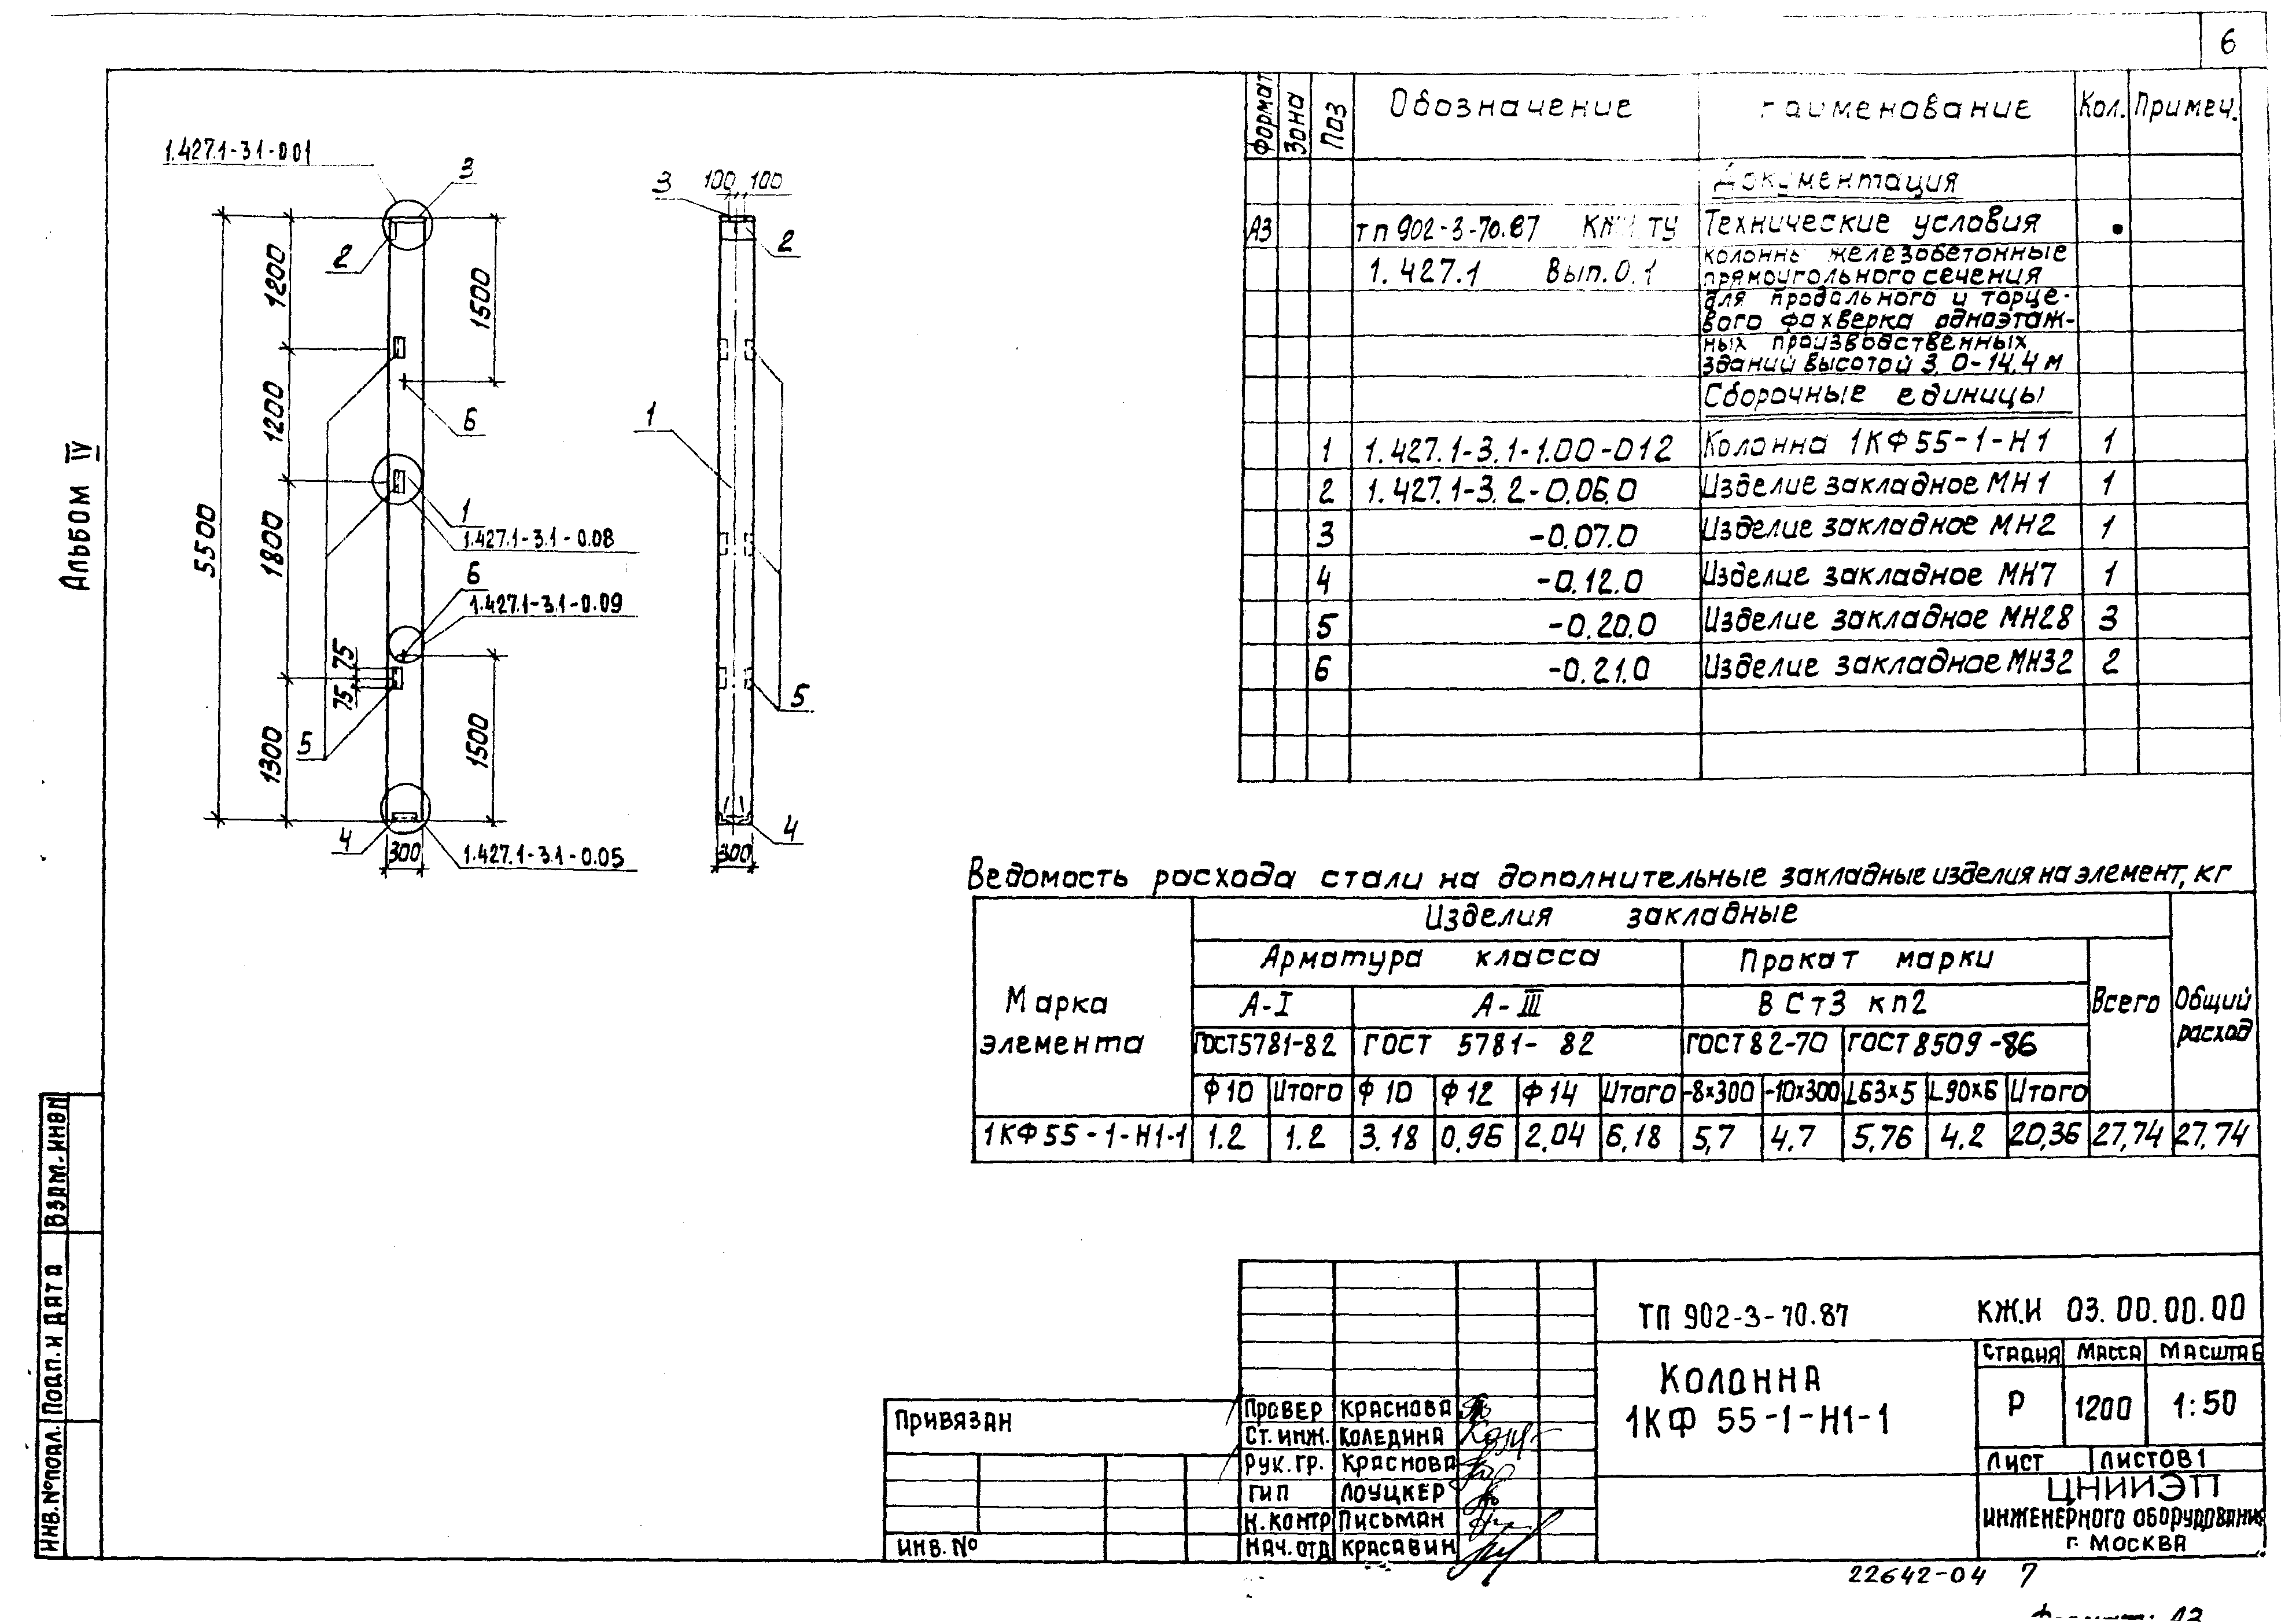 6
Альбом IV
1.427.1-3.1-0.01
3
2
1200
1500
1200
6
5500
1
1.427.1-3.1-0.08
1800
6
1.427.1-3.1-0.09
75
75
5
1300
1500
4
300
1.427.1-3.1-0.05
3
100 100
2
1
5
4
300
Формат Зона Поз Обозначение наименование Кол. Примеч.
Документация
А3 тп 902-3-70.87 КЖИ.ТУ Технические условия
1.427.1 Вып.0.1 колонны железобетонные
прямоугольного сечения
для продольного и торце-
вого фахверка одноэтаж-
ных производственных
зданий высотой 3,0-14,4 м
Сборочные единицы
1 1.427.1-3.1-1.00-012 Колонна 1КФ55-1-Н1 1
2 1.427.1-3.2-0.06.0 Изделие закладное МН1 1
3 -0.07.0 Изделие закладное МН2 1
4 -0.12.0 Изделие закладное МН7 1
5 -0.20.0 Изделие закладное МН28 3
6 -0.21.0 Изделие закладное МН32 2
Ведомость расхода стали на дополнительные закладные изделия на элемент, кг
Марка элемента
Изделия закладные
Арматура класса Прокат марки
А-I А-III ВСт3 кп2 Всего Общий расход
ГОСТ5781-82 ГОСТ 5781-82 ГОСТ82-70 ГОСТ8509-86
Ф10 Итого Ф10 Ф12 Ф14 Итого -8х300 -10х300 L63х5 L90х6 Итого
1КФ55-1-Н1-1 1.2 1.2 3.18 0,96 2,04 6,18 5,7 4.7 5,76 4.2 20,36 27,74 27,74
Взам.инв№
Подп. и дата
Инв.№подл.
ТП 902-3-70.87 КЖ.И 03.00.00.00
Колонна
1КФ 55-1-Н1-1
Стадия Масса Масштаб
Р 1200 1:50
Лист Листов 1
ЦНИИЭП
инженерного оборудования
г. Москва
Привязан
Инв. №
Провер Краснова
Ст. инж. Коледина
Рук. гр. Краснова
ГИП Лоуцкер
Н. контр Письман
Нач. отд Красавин
22642-04 7
Формат: А3